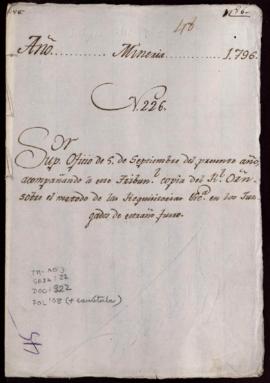 176
48
Año. Mineria 1796.
N. 226.
Sor
Sup. Oficio de 5. de Septiembre del presente año,
acompañando à este Tribun.l copia del Rl. Orn
sobre el metodo de las Requisitorias &ca en los Juz-
gados de extraño fuero.
DOC: 822
FOL: 08 (+ carátula)